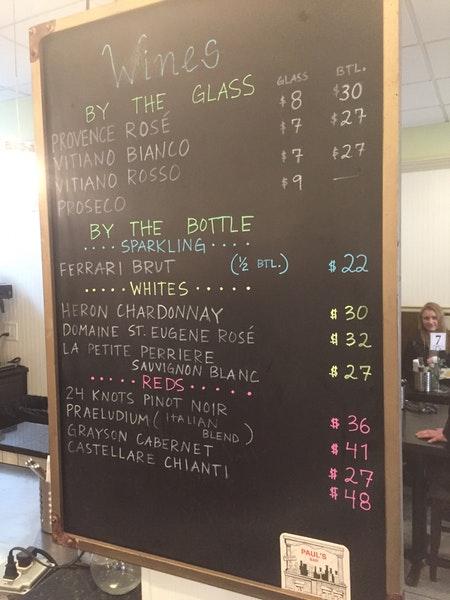 Wines
BY THE GLASS GLASS BTL.
PROVENCE ROSÉ $8 $30
VITIANO BIANCO $7 $27
VITIANO ROSSO $7 $27
PROSECO $9 —
BY THE BOTTLE
SPARKLING
FERRARI BRUT (½ BTL.) $22
WHITES
HERON CHARDONNAY $30
DOMAINE ST. EUGENE ROSÉ $32
LA PETITE PERRIERE
SAUVIGNON BLANC $27
REDS
24 KNOTS PINOT NOIR $36
PRAELUDIUM (ITALIAN
BLEND) $41
GRAYSON CABERNET $27
CASTELLARE CHIANTI $48
PAUL'S
BAR
7